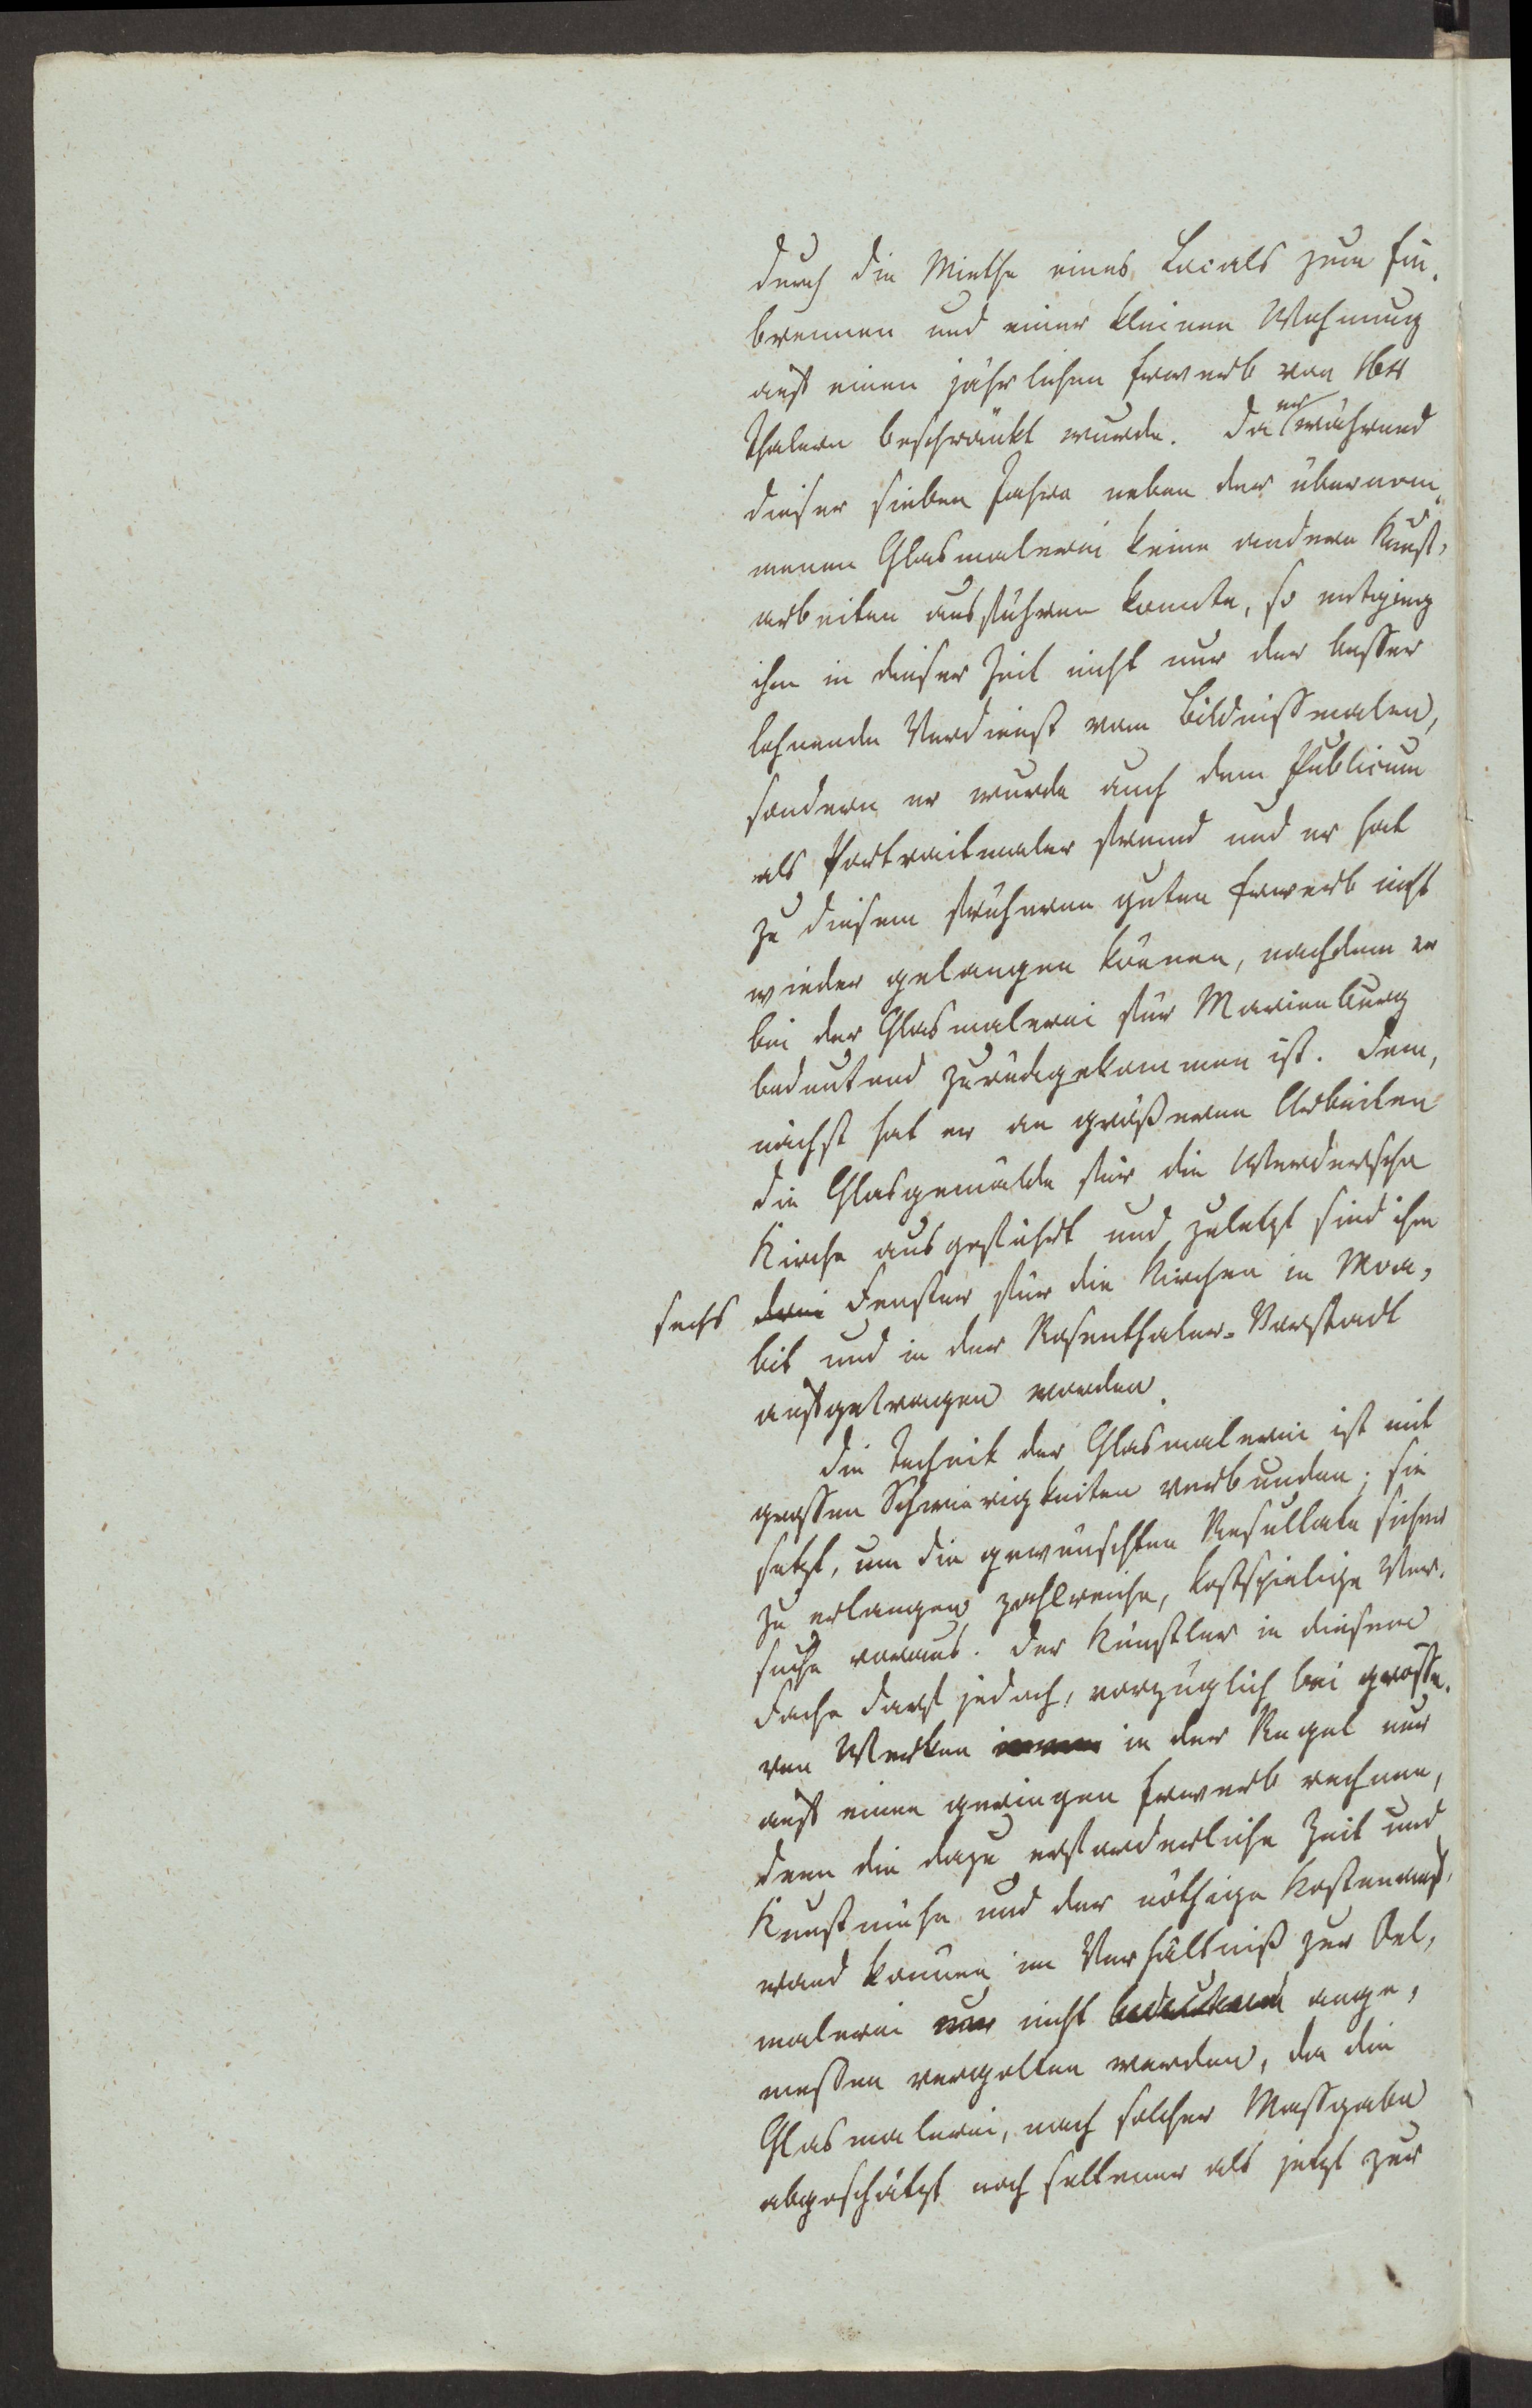 durch die Miethe eines Locals zum Ein-
brennen und einer kleinen Wohnung
auf einen jährlichen Erwerb von 164
Thalern beschränkt wurde. Da er während
dieser sieben Jahre neben der übernom-
menen Glasmalerei keine andern Kunst-
arbeiten ausführen konnte, so entging
ihm in dieser Zeit nicht nur der besser
lohnende Verdienst vom Bildnissmalen,
sondern er wurde auch dem Publicum
als Portraitmaler fremd und er hat
zu diesem früheren guten Erwerb nicht
wieder gelangen können, nachdem er
bei der Glasmalerei für Marienburg
bedeutend zurückgekommen ist. Dem-
nächst hat er an größeren Arbeiten
die Glasgemälde für die Werdersche
Kirche ausgeführt und zuletzt sind ihm
sechs drei Fenster für die Kirchen in Moa-
bit und in der Rosenthaler-Vorstadt
aufgetragen worden.
Die Technik der Glasmalerei ist mit
grossen Schwierigkeiten verbunden; sie
setzt, um die gewünschten Resultate sicher
zu erlangen zahlreiche, kostspielige Ver-
suche voraus. Der Künstler in diesem
Fache darf jedoch, vorzüglich bei grösse-
ren Werken in der Regel nur
auf einen geringen Erwerb rechnen,
denn die dazu erforderliche Zeit und
Kunstmühe und der nöthige Kostenauf-
wand können im Verhältniß zur Oel-
malerei nur nicht bedeutend ange-
messen vergolten werden, da die
Glasmalerei, nach solcher Massgabe
abgeschätzt noch seltener als jetzt zur